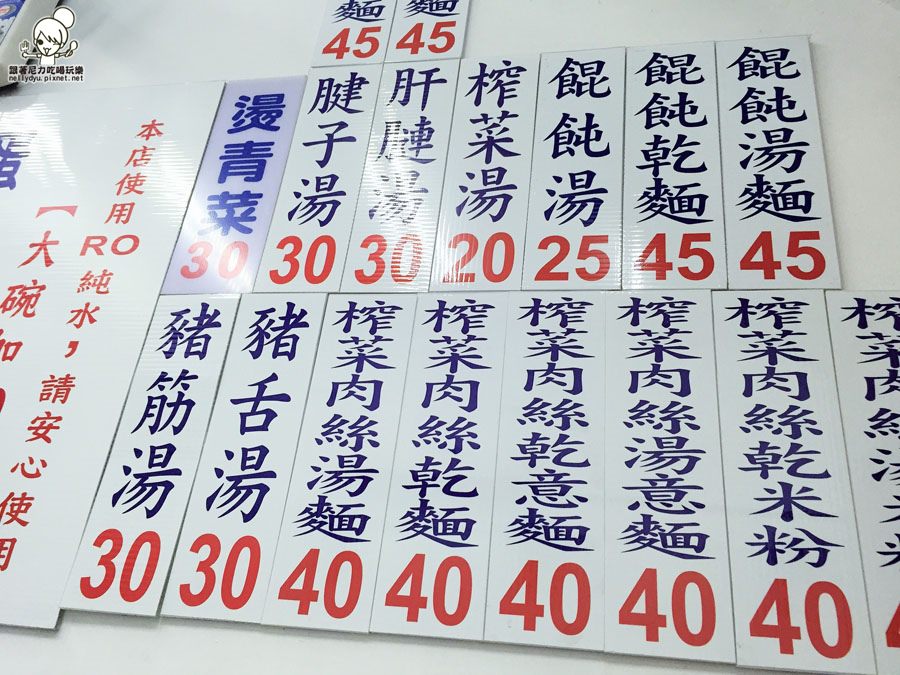 跟著尼力吃喝玩樂
nellydyu.pixnet.net
麵
45
麵
45
燙青菜
30
腱子湯
30
肝腱湯
30
榨菜湯
20
餛飩湯
25
餛飩乾麵
45
餛飩湯麵
45
本店使用
RO純水,請安心使用
【大碗加
豬筋湯
30
豬舌湯
30
榨菜肉絲湯麵
40
榨菜肉絲乾麵
40
榨菜肉絲乾意麵
40
榨菜肉絲湯意麵
40
榨菜肉絲乾米粉
40
榨菜肉絲湯米